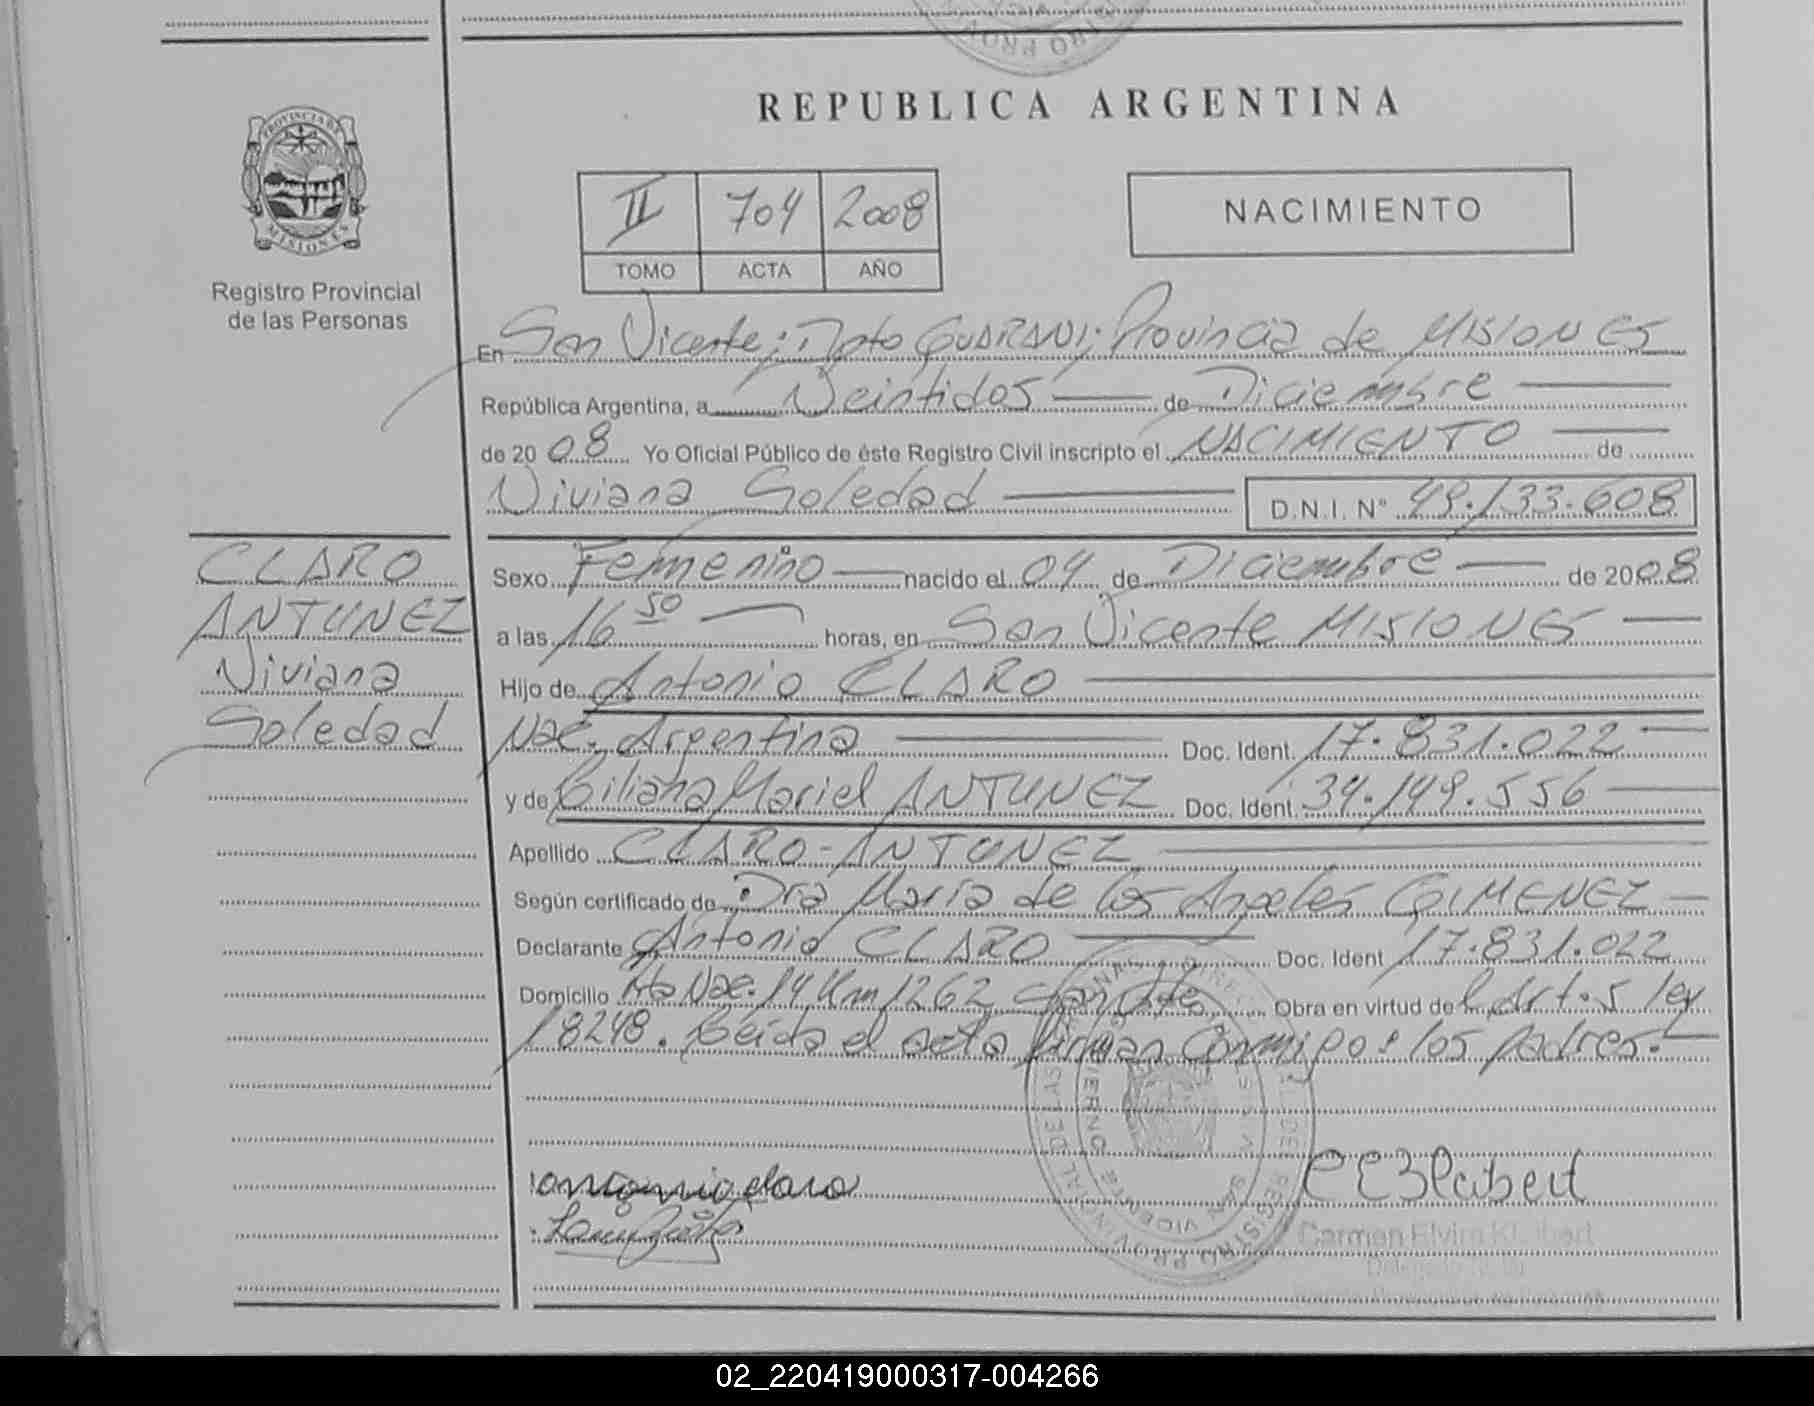 REPUBLICA ARGENTINA
PROVINCIA DE
MISIONES
Registro Provincial
de las Personas
II 704 2008
TOMO ACTA AÑO
NACIMIENTO
En San Vicente; Dpto GUARANI; Provincia de MISIONES
República Argentina, a Veintidos de Diciembre
de 2008 Yo Oficial Público de éste Registro Civil inscripto el NACIMIENTO de
Viviana Soledad D.N.I. Nº 49.133.608
CLARO
ANTUNEZ
Viviana
Soledad
Sexo Femenino nacido el 04 de Diciembre de 2008
a las 16 50 horas, en San Vicente MISIONES
Hijo de Antonio CLARO
Nac. Argentina Doc. Ident. 17.831.022
y de Liliana Mariel ANTUNEZ Doc. Ident. 34.149.556
Apellido CLARO-ANTUNEZ
Según certificado de Dra Maria de los Angeles GIMENEZ
Declarante Antonio CLARO Doc. Ident 17.831.022
Domicilio Nac. 14 Km 1262 San Vte Obra en virtud del Art. 5 ley
18248. Leida el acta firman conmigo: los padres.
antonio claro
CEKlabert
Carmen Elvira
02_220419000317-004266